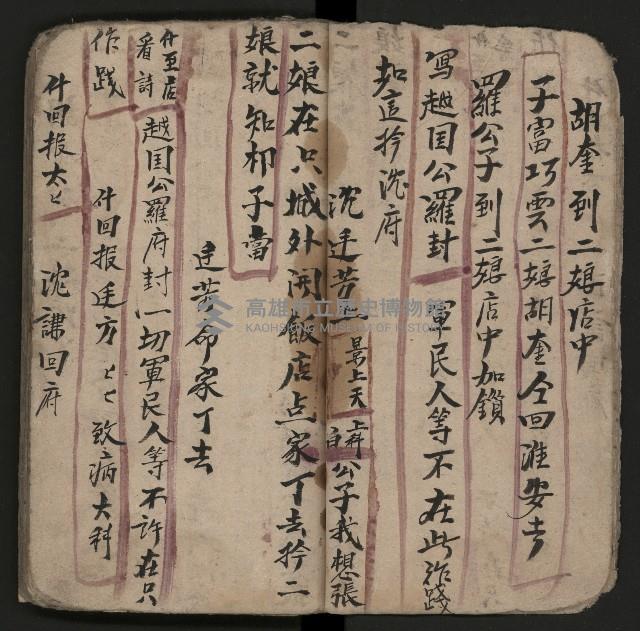 胡奎到二娘店中
子富巧雲二娘胡奎仝回淮安去
羅公子到二娘店中加鎖
写越国公羅封 軍民人等不在此作踐
知這拎沈府
沈廷芳 景上天 上科白 公子我想張
二娘在只城外開飯店点家丁去拎二
娘就知柳子富
廷芳命家丁去
什至店看詩 越国公羅府封一切軍民人等不許在只
作践 什回报廷方 匕匕 致病大科
什回报太匕 沈謙回府
高雄市立歷史博物館
KAOHSIUNG MUSEUM OF HISTORY